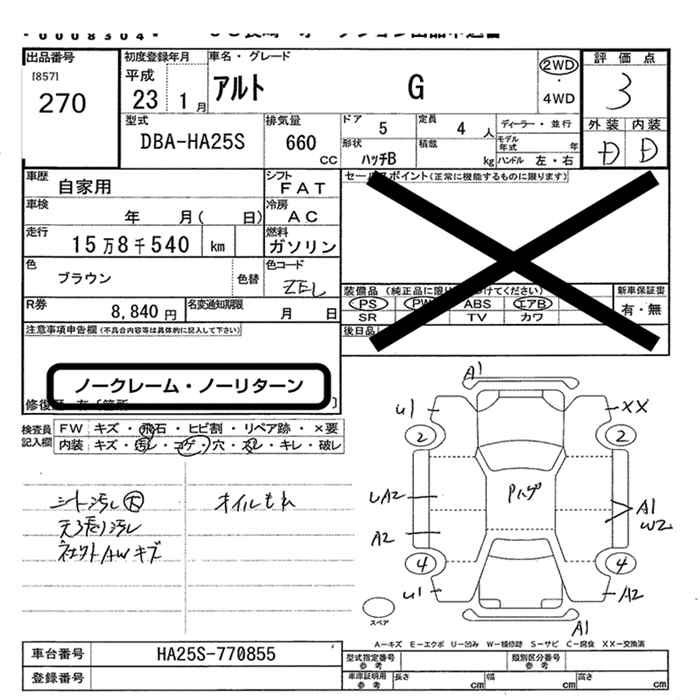 *0008304*
出品番号
[857]
270
初度登録年月
平成
23 1月
車名・グレード
アルト G
2WD
・
4WD
評価点
3
外装 内装
D D
型式
DBA-HA25S
排気量
660
CC
ドア
5
定員
4 人
ディーラー・並行
形状
ハッチB
積載
kg
モデル年式
年
ハンドル 左・右
車歴
自家用
シフト
FAT
車検
年 月( 日)
冷房
AC
走行
15万8千540 km
燃料
ガソリン
色
ブラウン
色替
色コード
ZEL
R券
8,840 円
名変通知期限
月 日
セールスポイント(正常に機能するものに限ります)
装備品(純正品に限り
けてください)
PS PW ABS エアB
SR TV カワ
新車保証書
有・無
後日品
注意事項申告欄(不具合内容等は具体的に記入して下さい)
ノークレーム・ノーリターン
検査員
記入欄
FW キズ・飛石・ヒビ割・リペア跡・×要
内装 キズ・汚レ・コゲ・穴・スレ・キレ・破レ
シート汚レ 大
オイルもれ
AWキズ
A1
U1
XX
2
2
UA2
Pハゲ
A1
W2
A2
4
4
U1
A2
A1
スペア
A―キズ E―エクボ U―凹み W―補修跡 S―サビ C―腐食 XX―交換済
車台番号
HA25S-770855
登録番号
型式指定番号
参考
類別区分番号
参考
車庫証明用
参考
長さ cm
幅 cm
高さ cm